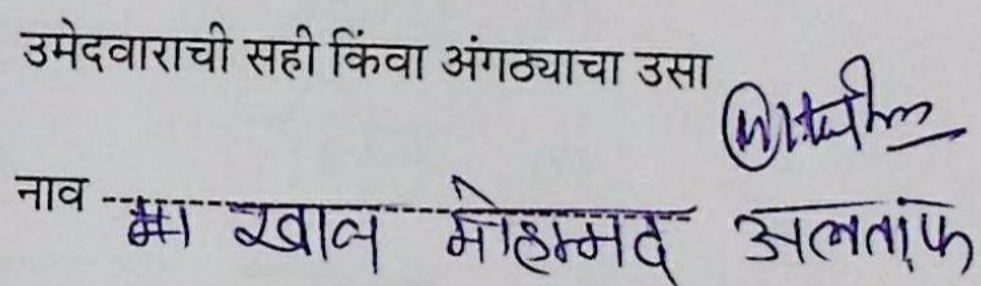 उमेदवाराची सही किंवा अंगठ्याचा उसा
नाव खान मोहम्मद अलताफ